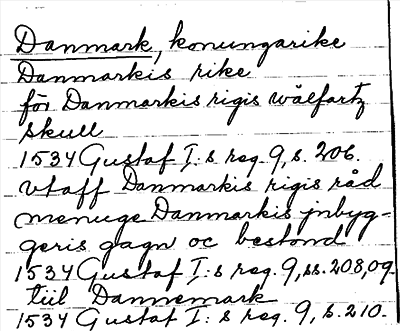 Danmark, konungarike
Danmarkis rike
för Danmarkis rigis wälfartz
skull
1534 Gustaf I:s reg. 9, s. 206.
vtaff Danmarkis rigis råd
menuge Danmarkis jnbyg-
geris gagn oc bestond
1534 Gustaf I:s reg. 9, ss. 208,09.
tiil Dannemark
1534 Gustaf I:s reg. 9, s. 210.